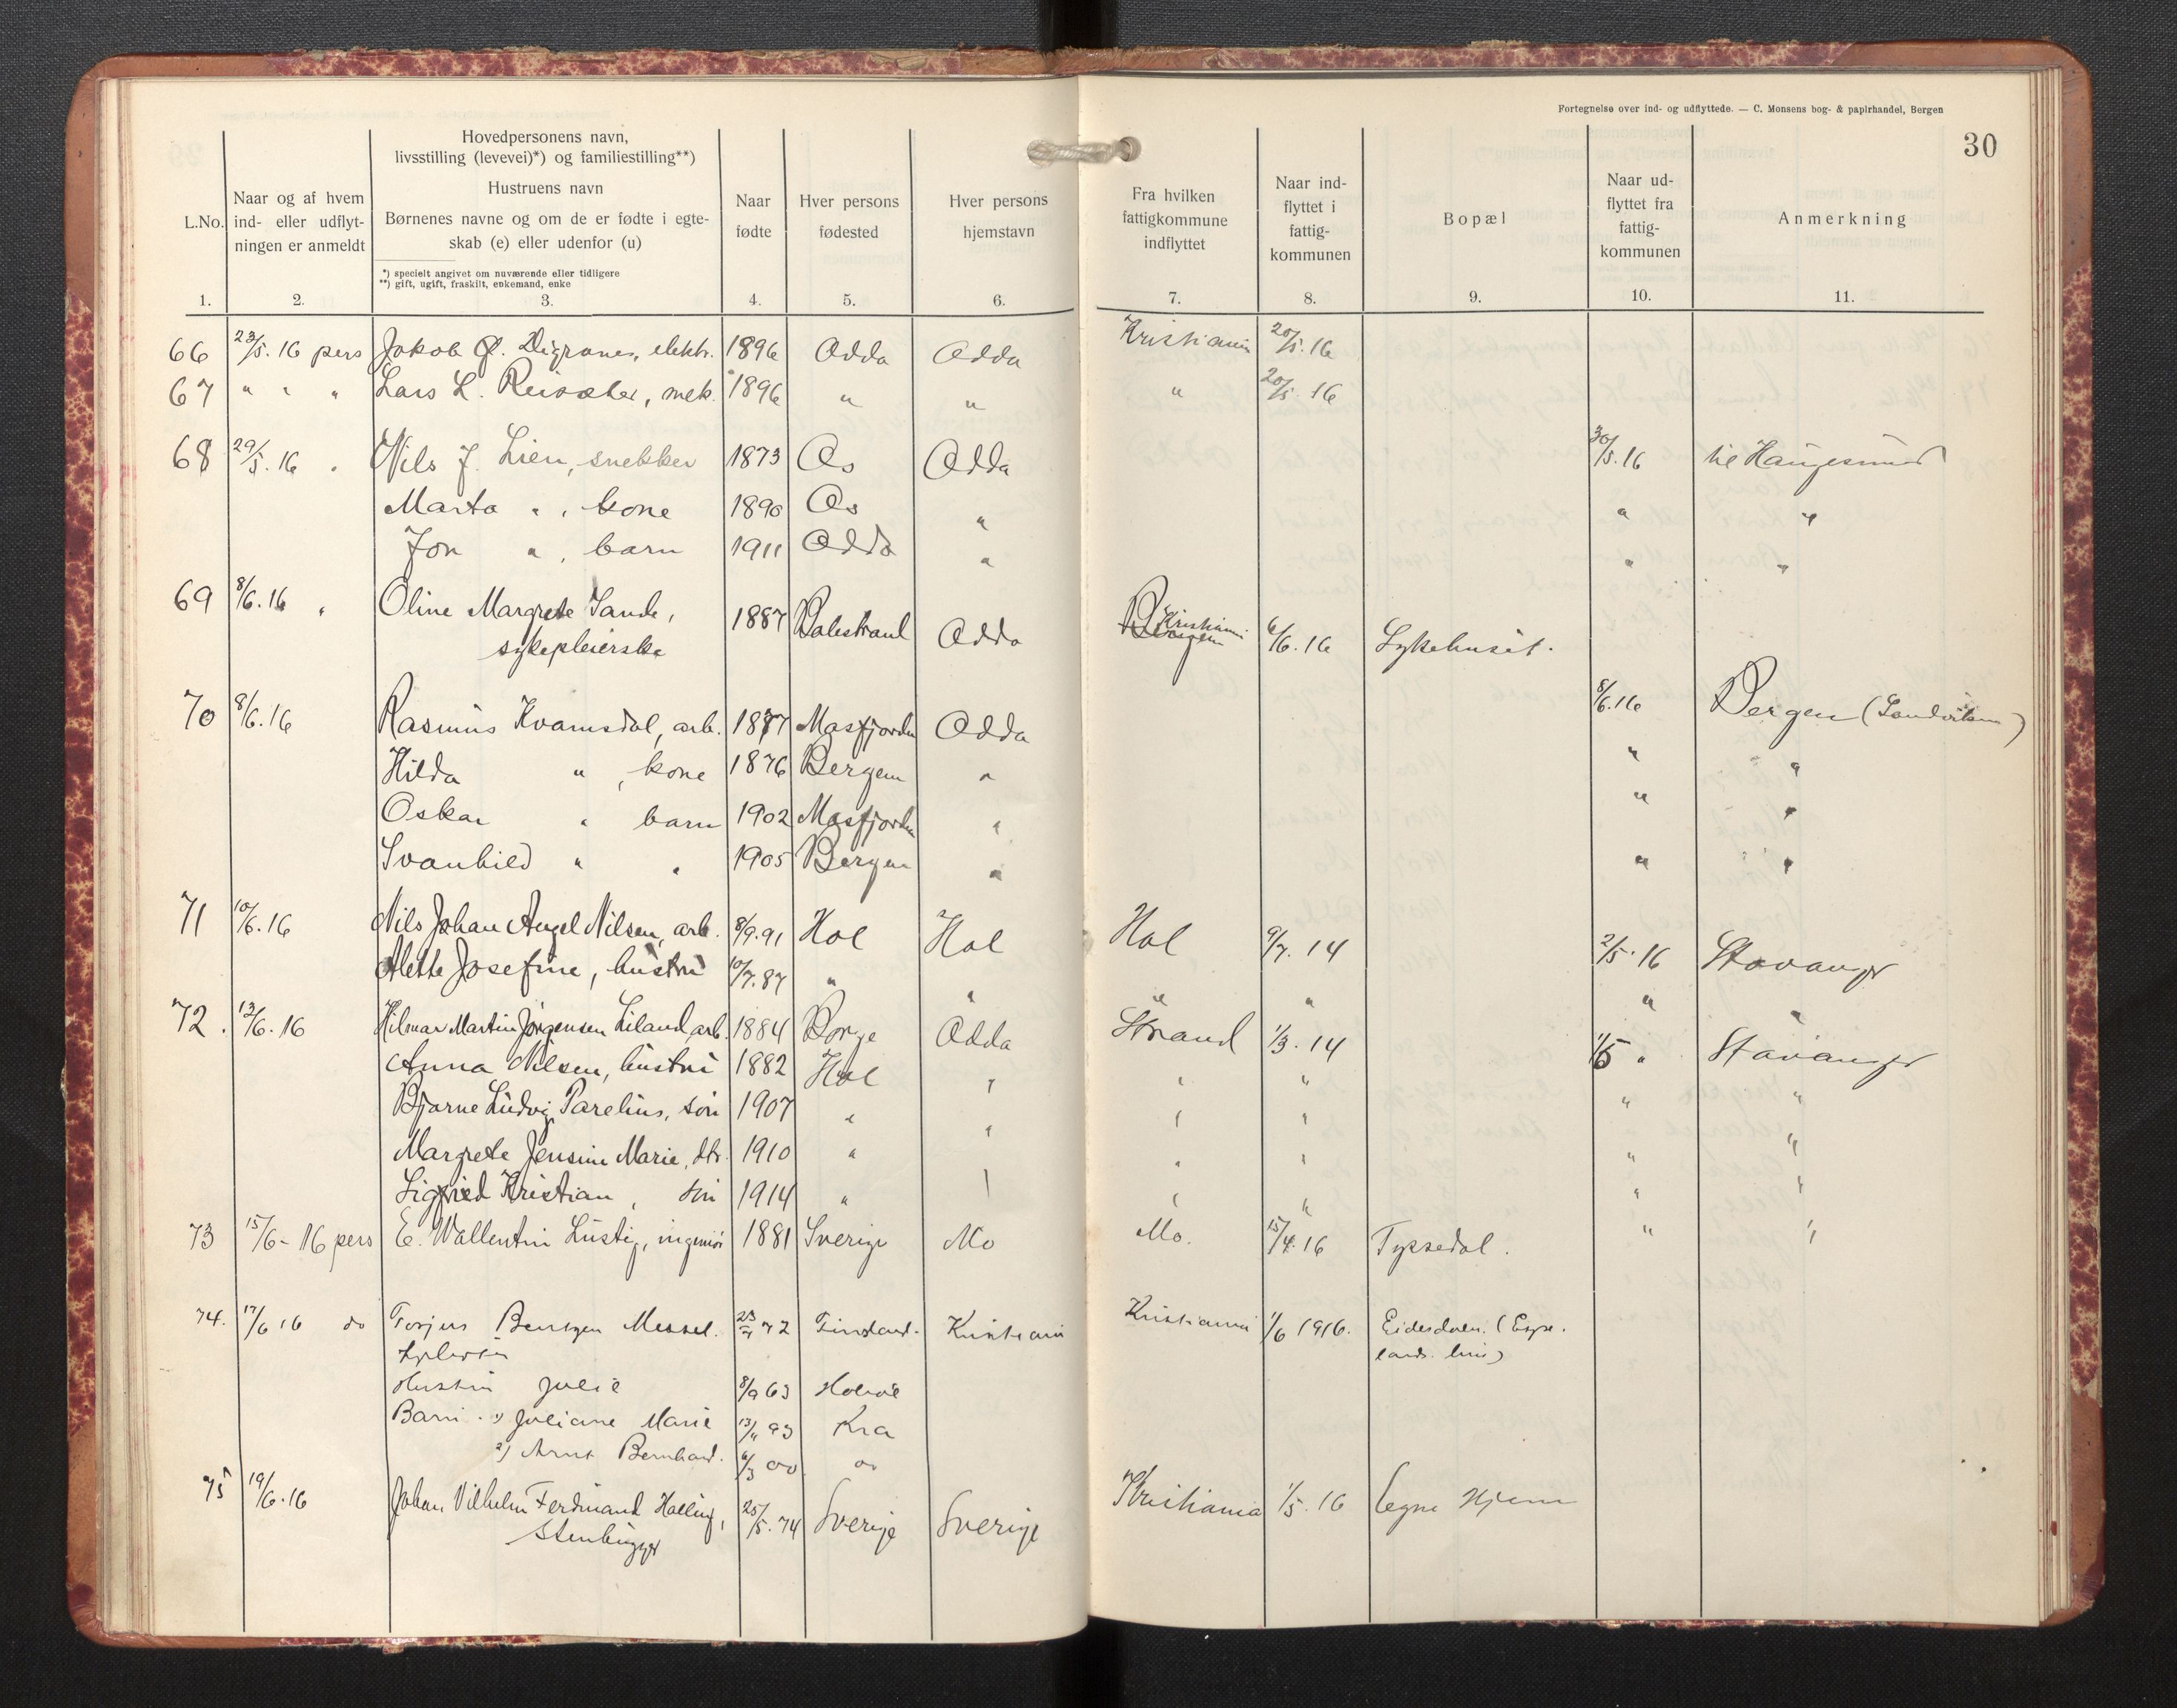 Fortegnelse over ind- og udflyttede. — C. Monsens bog- & papirhandel, Bergen
30
L.No.
1.
Naar og af hvem
ind- eller udflyt-
ningen er anmeldt
2.
Hovedpersonens navn,
livsstilling (levevei)*) og familiestilling**)
Hustruens navn
Børnenes navne og om de er fødte i egte-
skab (e) eller udenfor (u)
*) specielt angivet om nuværende eller tidligere
**) gift, ugift, fraskilt, enkemand, enke
3.
Naar
fødte
4.
Hver persons
fødested
5.
Hver persons
hjemstavn
6.
Fra hvilken
fattigkommune
indflyttet
7.
Naar ind-
flyttet i
fattig-
kommunen
8.
Bopæl
9.
Naar ud-
flyttet fra
fattig-
kommunen
10.
Anmerkning
11.
66 23/5. 16 pers Jakob Digranes, elektr. 1896 Odda Odda Kristiania 20/5. 16
67 " " " Lars L. Reisæter, mek. 1896 " " " 20/5. 16
68 29/5. 16 " Nils J. Lien, snekker 1873 Os Odda 30/5. 16 til Haugesund
Marta " , kone 1890 Os " " "
Jon " , barn 1911 Odda " " "
69 8/6. 16 " Oline Margrete Sande, 1887 Balestrand Odda Bergen Kristiania 6/6. 16 Sykehuset.
sykepleierske
70 8/6. 16 Rasmus Kvamsdal, arb. 1877 Masfjorden Odda 8/6. 16 Bergen (Sandviken)
Hilda " , kone 1876 Bergen " " "
Oskar " barn 1902 Masfjorden " " "
Svanhild " " 1905 Bergen " " "
71 10/6. 16 Nils Johan Angel Nilsen, arb. 8/9. 91 Hol Hol Hol 9/7. 14 2/5. 16 Stavanger
Alette Josefine, hustru 10/7. 87 " " " " " "
72. 13/6. 16 Hilmar Martin Jörgensen Liland arb. 1884 Borge Odda Strand 1/3. 14 1/5 " Stavanger
Anna Nilsen, hustru 1882 Hol " " " " "
Bjarne Ludvig Parelius, sön 1907 " " " " " "
Margrete Jensine Marie, dtr. 1910 " " " " " "
Sigfried Kristian, sön 1914 " " " " " "
73 15/6 - 16 pers E. Wallentin Lustig, ingeniör 1881 Sverige Mo Mo. 15/4. 16 Tyssedal.
74. 17/6 16 do Torjus Bentzen Messel. 72 Finsland. Kristiania Kristiania 1/6 1916. Eidesdalen. (Espe-
lands hus)
Hustru Julie 8/9 63
Barn. 1) Juliane Marie 93 Kra
2) Arnt Bernhard. 6/3 00 do
75 19/6. 16 Johan Vilhelm Ferdinand Halling, 25/5. 74 Sverige Sverige Kristiania 1/5. 16 Egne Hjem
Stenhugger